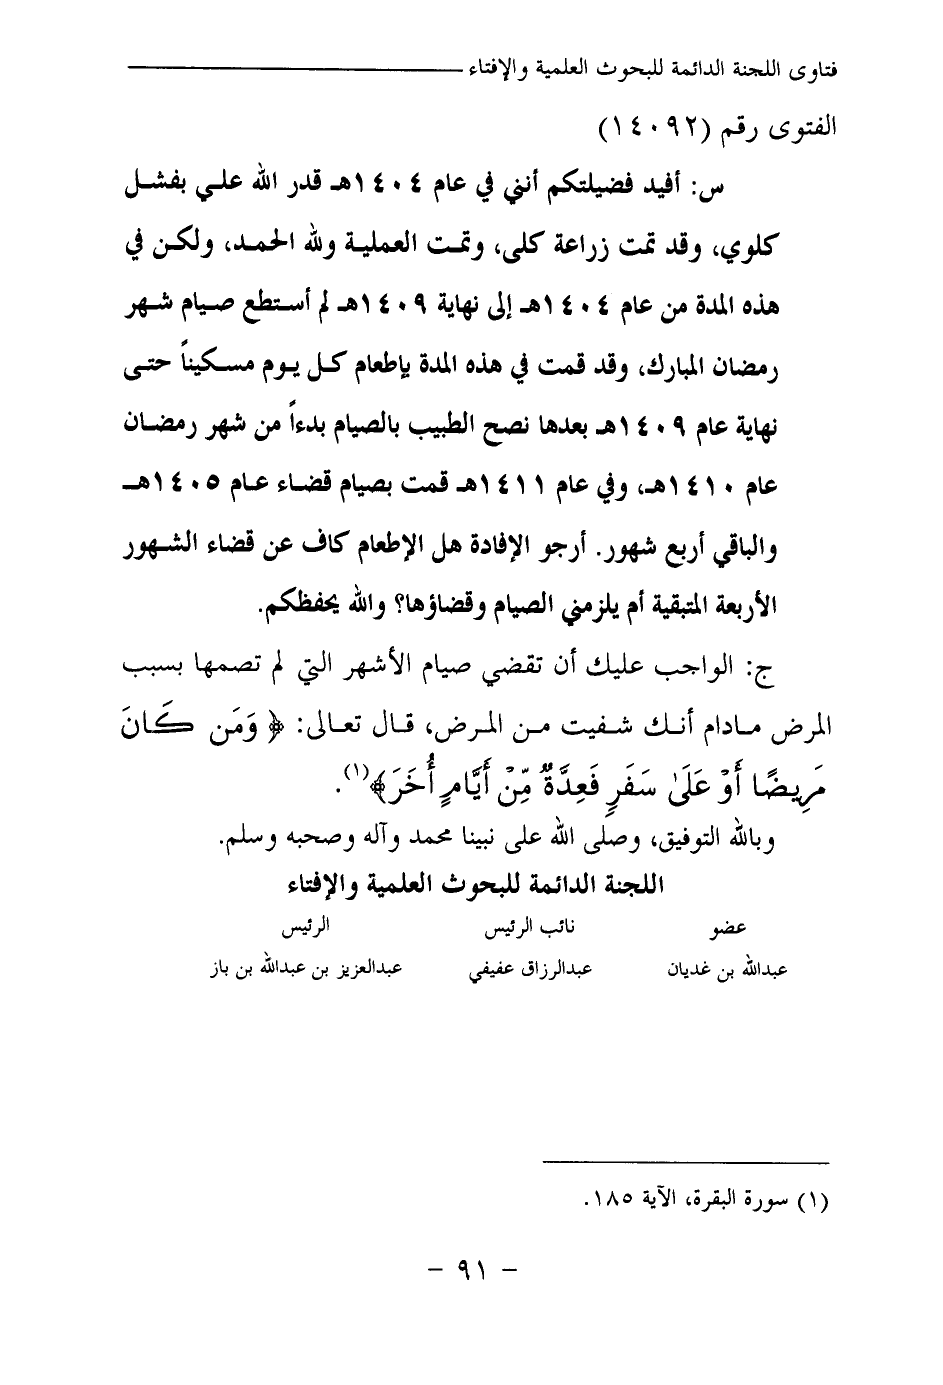 فتاوى اللجنة الدائمة للبحوث العلمية والإفتاء
الفتوى رقم (١٤٠٩٢)
س: أفيد فضيلتكم أنني في عام ١٤٠٤هـ قدر الله علي بفشل
كلوي، وقد تمت زراعة كلى، وتمت العملية ولله الحمد، ولكن في
هذه المدة من عام ١٤٠٤هـ إلى نهاية ١٤٠٩هـ لم أستطع صيام شهر
رمضان المبارك، وقد قمت في هذه المدة بإطعام كل يوم مسكيناً حتى
نهاية عام ١٤٠٩هـ بعدها نصح الطبيب بالصيام بدءاً من شهر رمضان
عام ١٤١٠هـ، وفي عام ١٤١١هـ قمت بصيام قضاء عام ١٤٠٥هـ
والباقي أربع شهور. أرجو الإفادة هل الإطعام كاف عن قضاء الشهور
الأربعة المتبقية أم يلزمني الصيام وقضاؤها؟ والله يحفظكم.
ج: الواجب عليك أن تقضي صيام الأشهر التي لم تصمها بسبب
المرض مادام أنك شفيت من المرض، قال تعالى: ﴿ وَمَن كَانَ
مَرِيضًا أَوْ عَلَىٰ سَفَرٍ فَعِدَّةٌ مِّنْ أَيَّامٍ أُخَرَ﴾(١).
وبالله التوفيق، وصلى الله على نبينا محمد وآله وصحبه وسلم.
اللجنة الدائمة للبحوث العلمية والإفتاء
عضو نائب الرئيس الرئيس
عبدالله بن غديان عبدالرزاق عفيفي عبدالعزيز بن عبدالله بن باز
(١) سورة البقرة، الآية ١٨٥.
- ٩١ -